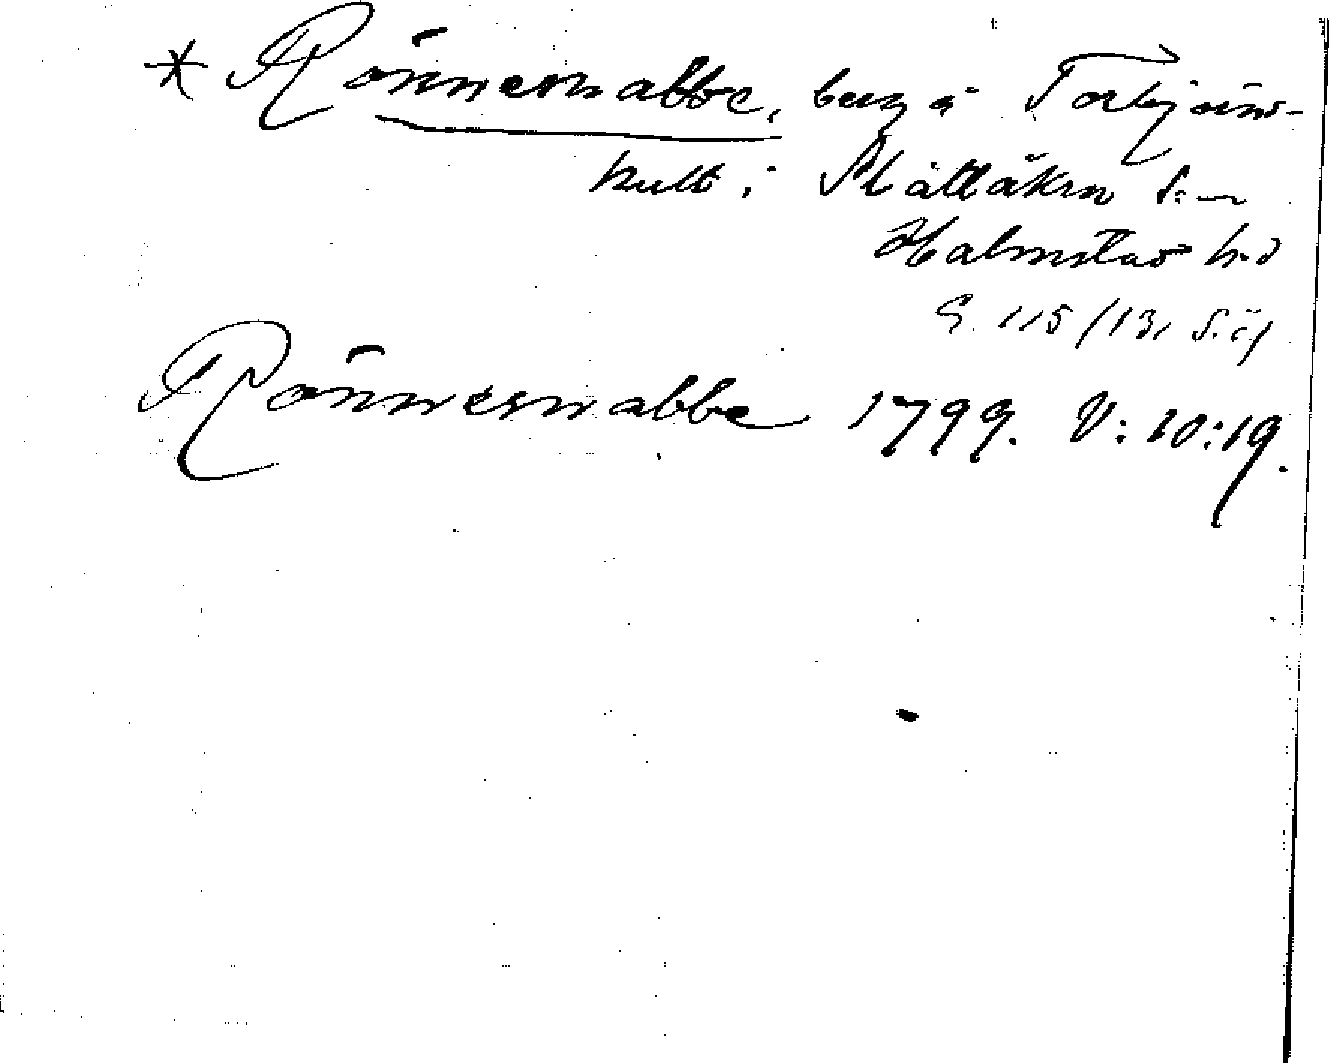 * Rönnesnabbe, berg å Torbjörns-
hult i Slättåkra s:n
Halmstad h:d
G. 115/131 S.ö/
Rönnesnabbe 1799. V:10:19.